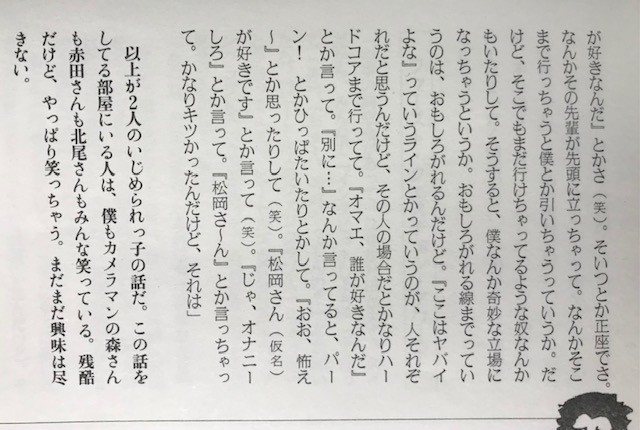 が好きなんだ』とかさ（笑）。そいつとか正座でさ。
なんかその先輩が先頭に立っちゃって。なんかそこ
まで行っちゃうと僕とか引いちゃうっていうか。だ
けど、そこでもまだ行けちゃってるような奴なんか
もいたりして。そうすると、僕なんか奇妙な立場に
なっちゃうというか。おもしろがれる線までってい
うのは、おもしろがれるんだけど。『ここはヤバイ
よな』っていうラインとかっていうのが、人それぞ
れだと思うんだけど、その人の場合だとかなりハー
ドコアまで行ってて。『オマエ、誰が好きなんだ』
とか言って。『別に…』なんか言ってると、パー
ン！　とかひっぱたいたりとかして。『おお、怖え
〜』とか思ったりして（笑）。『松岡さん（仮名）
が好きです』とか言って（笑）。『じゃ、オナニー
しろ』とか言って。『松岡さ〜ん』とか言っちゃっ
て。かなりキツかったんだけど、それは」
以上が2人のいじめられっ子の話だ。この話を
してる部屋にいる人は、僕もカメラマンの森さん
も赤田さんも北尾さんもみんな笑っている。残酷
だけど、やっぱり笑っちゃう。まだまだ興味は尽
きない。